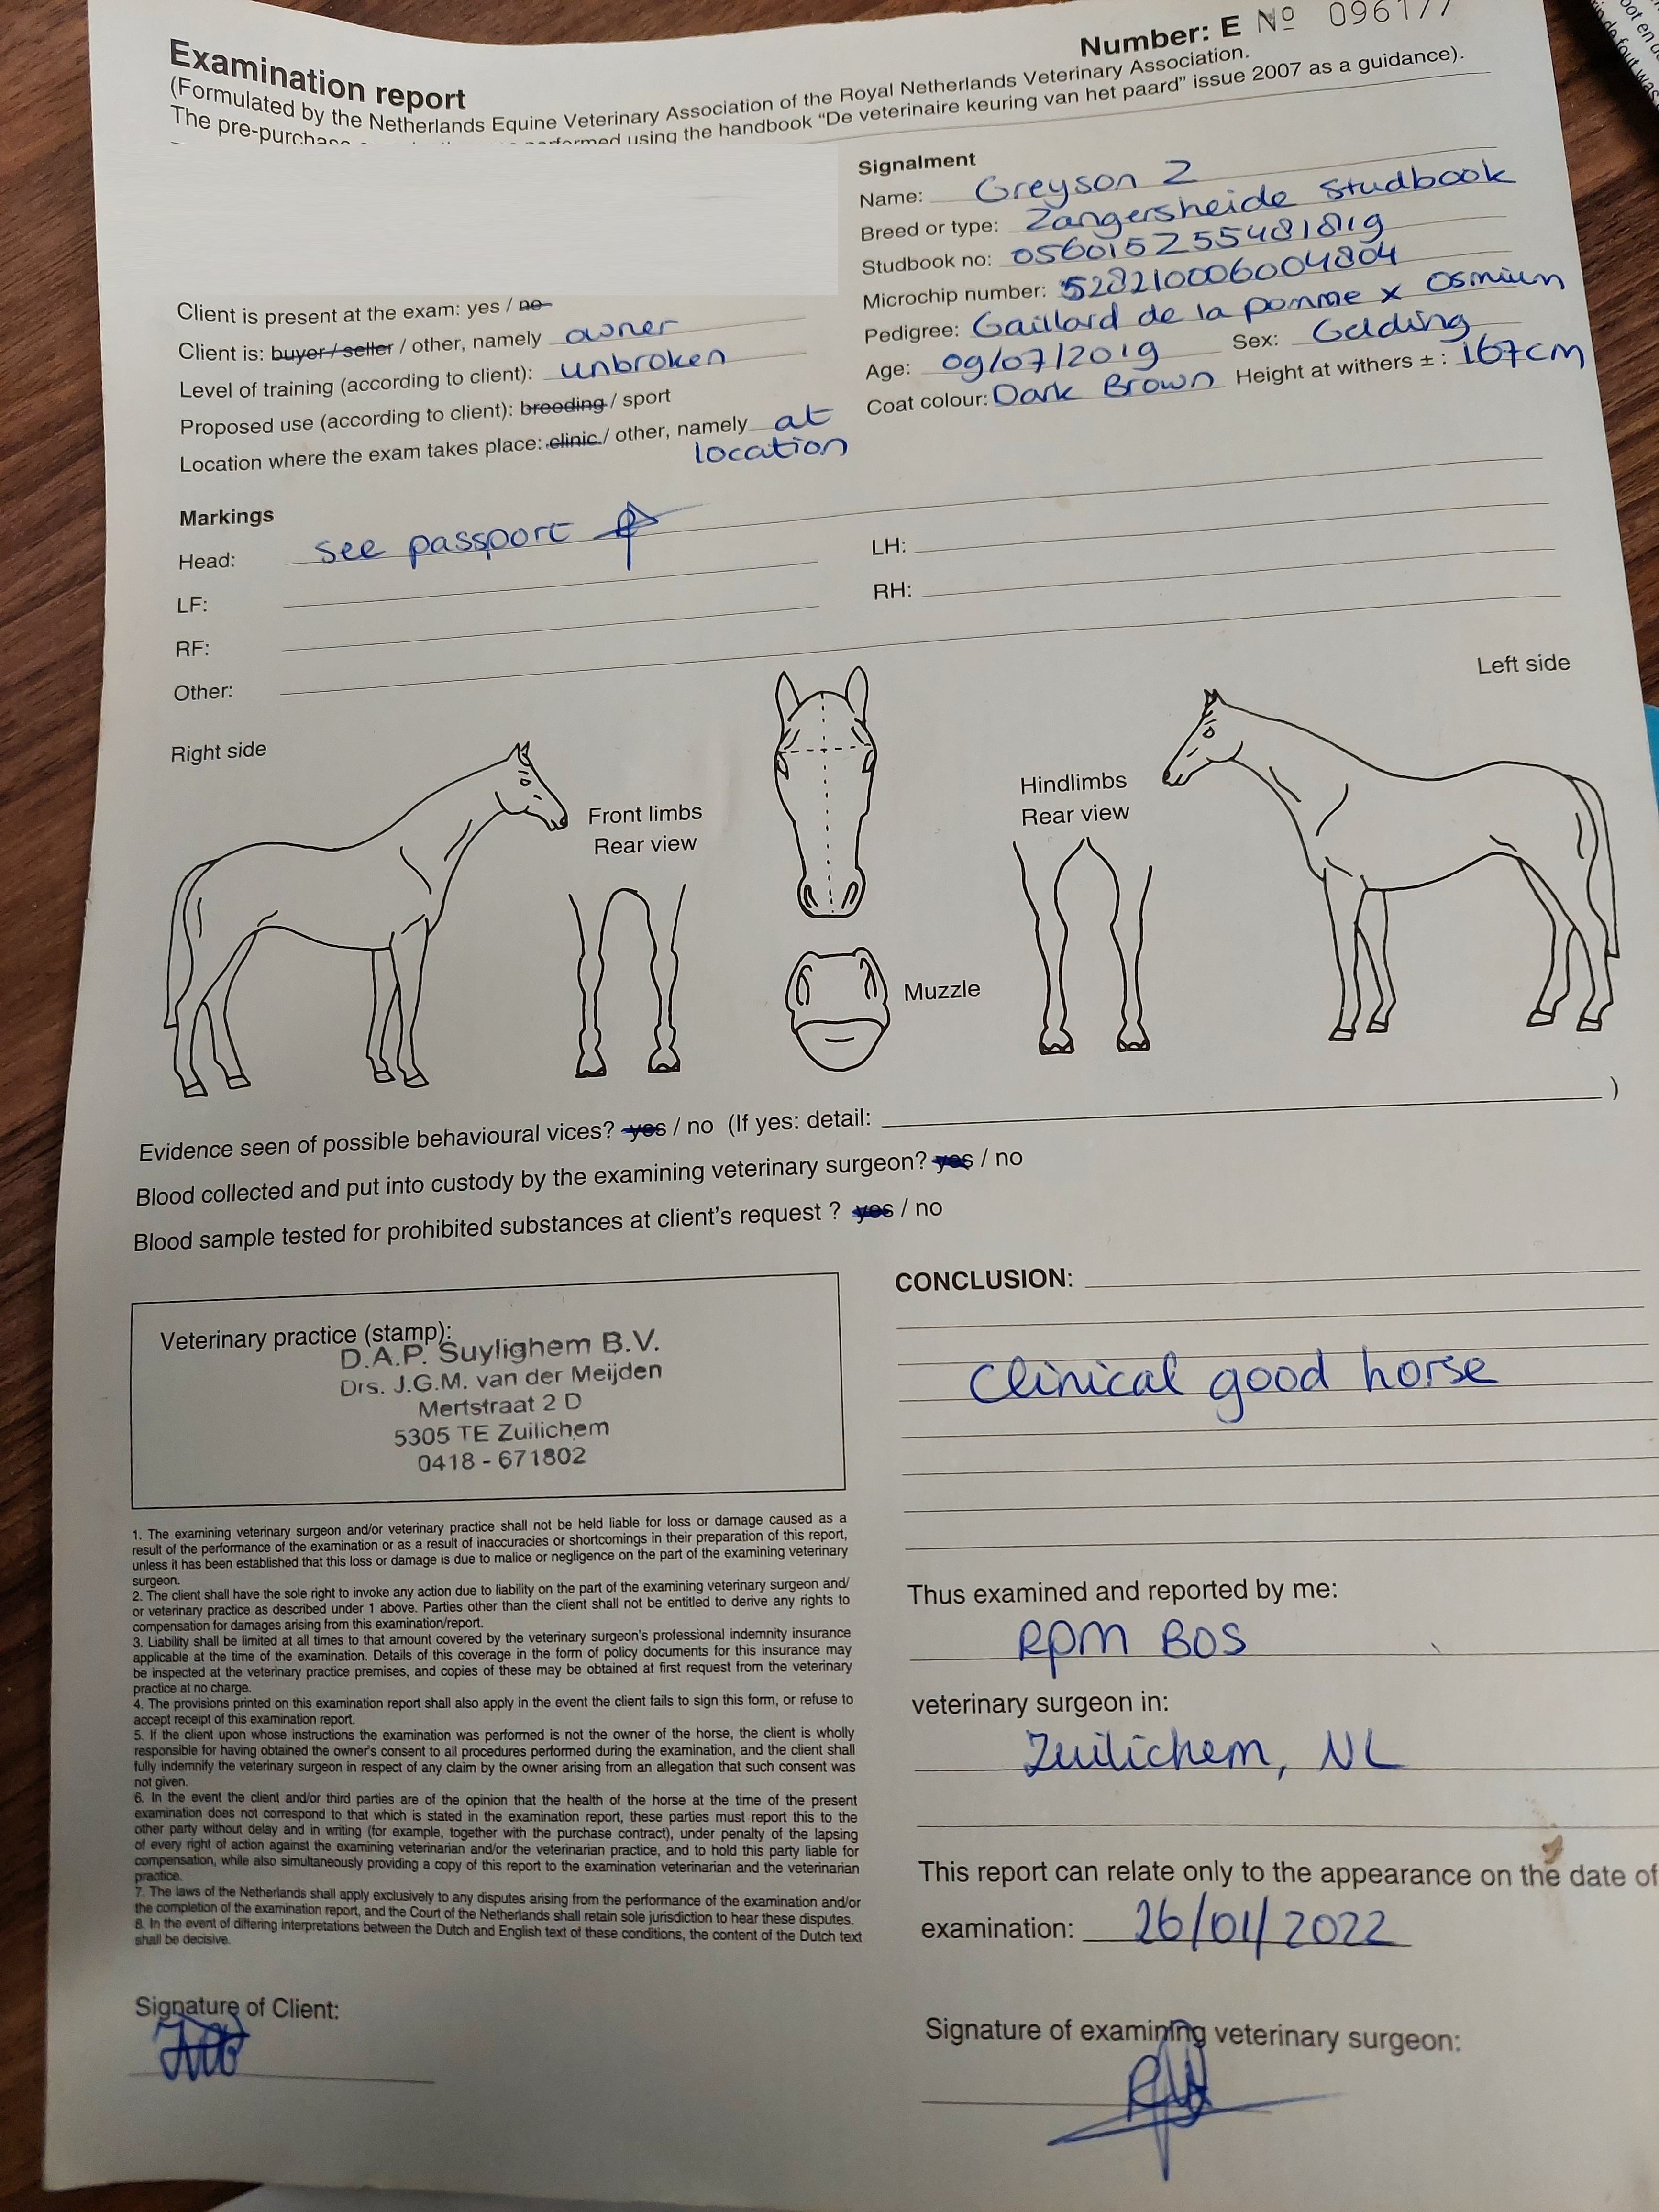 Examination report
Number: E Nº 096177
(Formulated by the Netherlands Equine Veterinary Association of the Royal Netherlands Veterinary Association.
The pre-purchase performed using the handbook "De veterinaire keuring van het paard" issue 2007 as a guidance).
Client is present at the exam: yes / no
Client is: buyer / seller / other, namely owner
Level of training (according to client): unbroken
Proposed use (according to client): breeding / sport
Location where the exam takes place: clinic / other, namely at
location
Signalment
Name: Greyson Z
Breed or type: Zangersheide Studbook
Studbook no: 056015Z55481819
Microchip number: 528210006004804
Pedigree: Gaillard de la pomme x Osmium
Age: 09/07/2019 Sex: Gelding
Coat colour: Dark Brown Height at withers ± : 167cm
Markings
Head: see passport
LF:
RF:
Other:
LH:
RH:
Right side
Front limbs
Rear view
Hindlimbs
Rear view
Left side
Muzzle
Evidence seen of possible behavioural vices? yes / no (If yes: detail: )
Blood collected and put into custody by the examining veterinary surgeon? yes / no
Blood sample tested for prohibited substances at client's request ? yes / no
Veterinary practice (stamp):
D.A.P. Suylighem B.V.
Drs. J.G.M. van der Meijden
Mertstraat 2 D
5305 TE Zuilichem
0418 - 671802
1. The examining veterinary surgeon and/or veterinary practice shall not be held liable for loss or damage caused as a
result of the performance of the examination or as a result of inaccuracies or shortcomings in their preparation of this report,
unless it has been established that this loss or damage is due to malice or negligence on the part of the examining veterinary
surgeon.
2. The client shall have the sole right to invoke any action due to liability on the part of the examining veterinary surgeon and/
or veterinary practice as described under 1 above. Parties other than the client shall not be entitled to derive any rights to
compensation for damages arising from this examination/report.
3. Liability shall be limited at all times to that amount covered by the veterinary surgeon's professional indemnity insurance
applicable at the time of the examination. Details of this coverage in the form of policy documents for this insurance may
be inspected at the veterinary practice premises, and copies of these may be obtained at first request from the veterinary
practice at no charge.
4. The provisions printed on this examination report shall also apply in the event the client fails to sign this form, or refuse to
accept receipt of this examination report.
5. If the client upon whose instructions the examination was performed is not the owner of the horse, the client is wholly
responsible for having obtained the owner's consent to all procedures performed during the examination, and the client shall
fully indemnify the veterinary surgeon in respect of any claim by the owner arising from an allegation that such consent was
not given.
6. In the event the client and/or third parties are of the opinion that the health of the horse at the time of the present
examination does not correspond to that which is stated in the examination report, these parties must report this to the
other party without delay and in writing (for example, together with the purchase contract), under penalty of the lapsing
of every right of action against the examining veterinarian and/or the veterinarian practice, and to hold this party liable for
compensation, while also simultaneously providing a copy of this report to the examination veterinarian and the veterinarian
practice.
7. The laws of the Netherlands shall apply exclusively to any disputes arising from the performance of the examination and/or
the completion of the examination report, and the Court of the Netherlands shall retain sole jurisdiction to hear these disputes.
8. In the event of differing interpretations between the Dutch and English text of these conditions, the content of the Dutch text
shall be decisive.
Signature of Client:
CONCLUSION:
Clinical good horse
Thus examined and reported by me:
RPM BOS
veterinary surgeon in:
Zuilichem, NL
This report can relate only to the appearance on the date of
examination: 26/01/2022
Signature of examining veterinary surgeon: